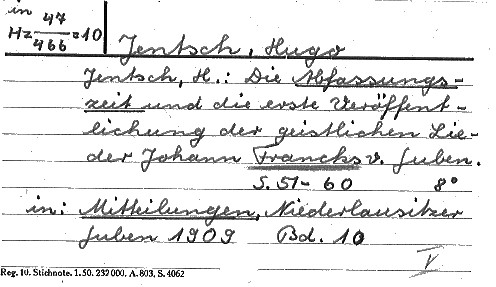 in
Hz 47/466 = 10
Jentsch, Hugo
Jentsch, H.: Die Abfassungs-
zeit und die erste Veröffent-
lichung der geistlichen Lie-
der Johann Francks v. Guben.
S. 51-60 8°
in: Mitteilungen, Niederlausitzer
Guben 1909 Bd. 10
V
Reg. 10. Stichnote. 1. 50. 232 000. A. 803, S. 4062